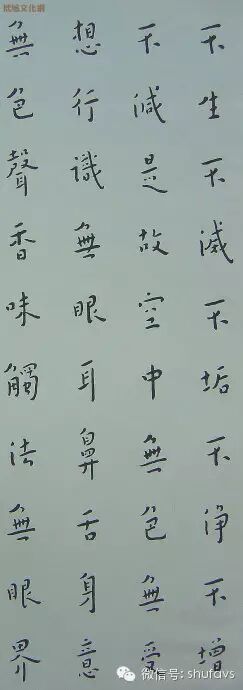 不生不滅不垢不淨不增
不減是故空中無色無受
想行識無眼耳鼻舌身意
無色聲香味觸法無眼界
微信号: shufavs